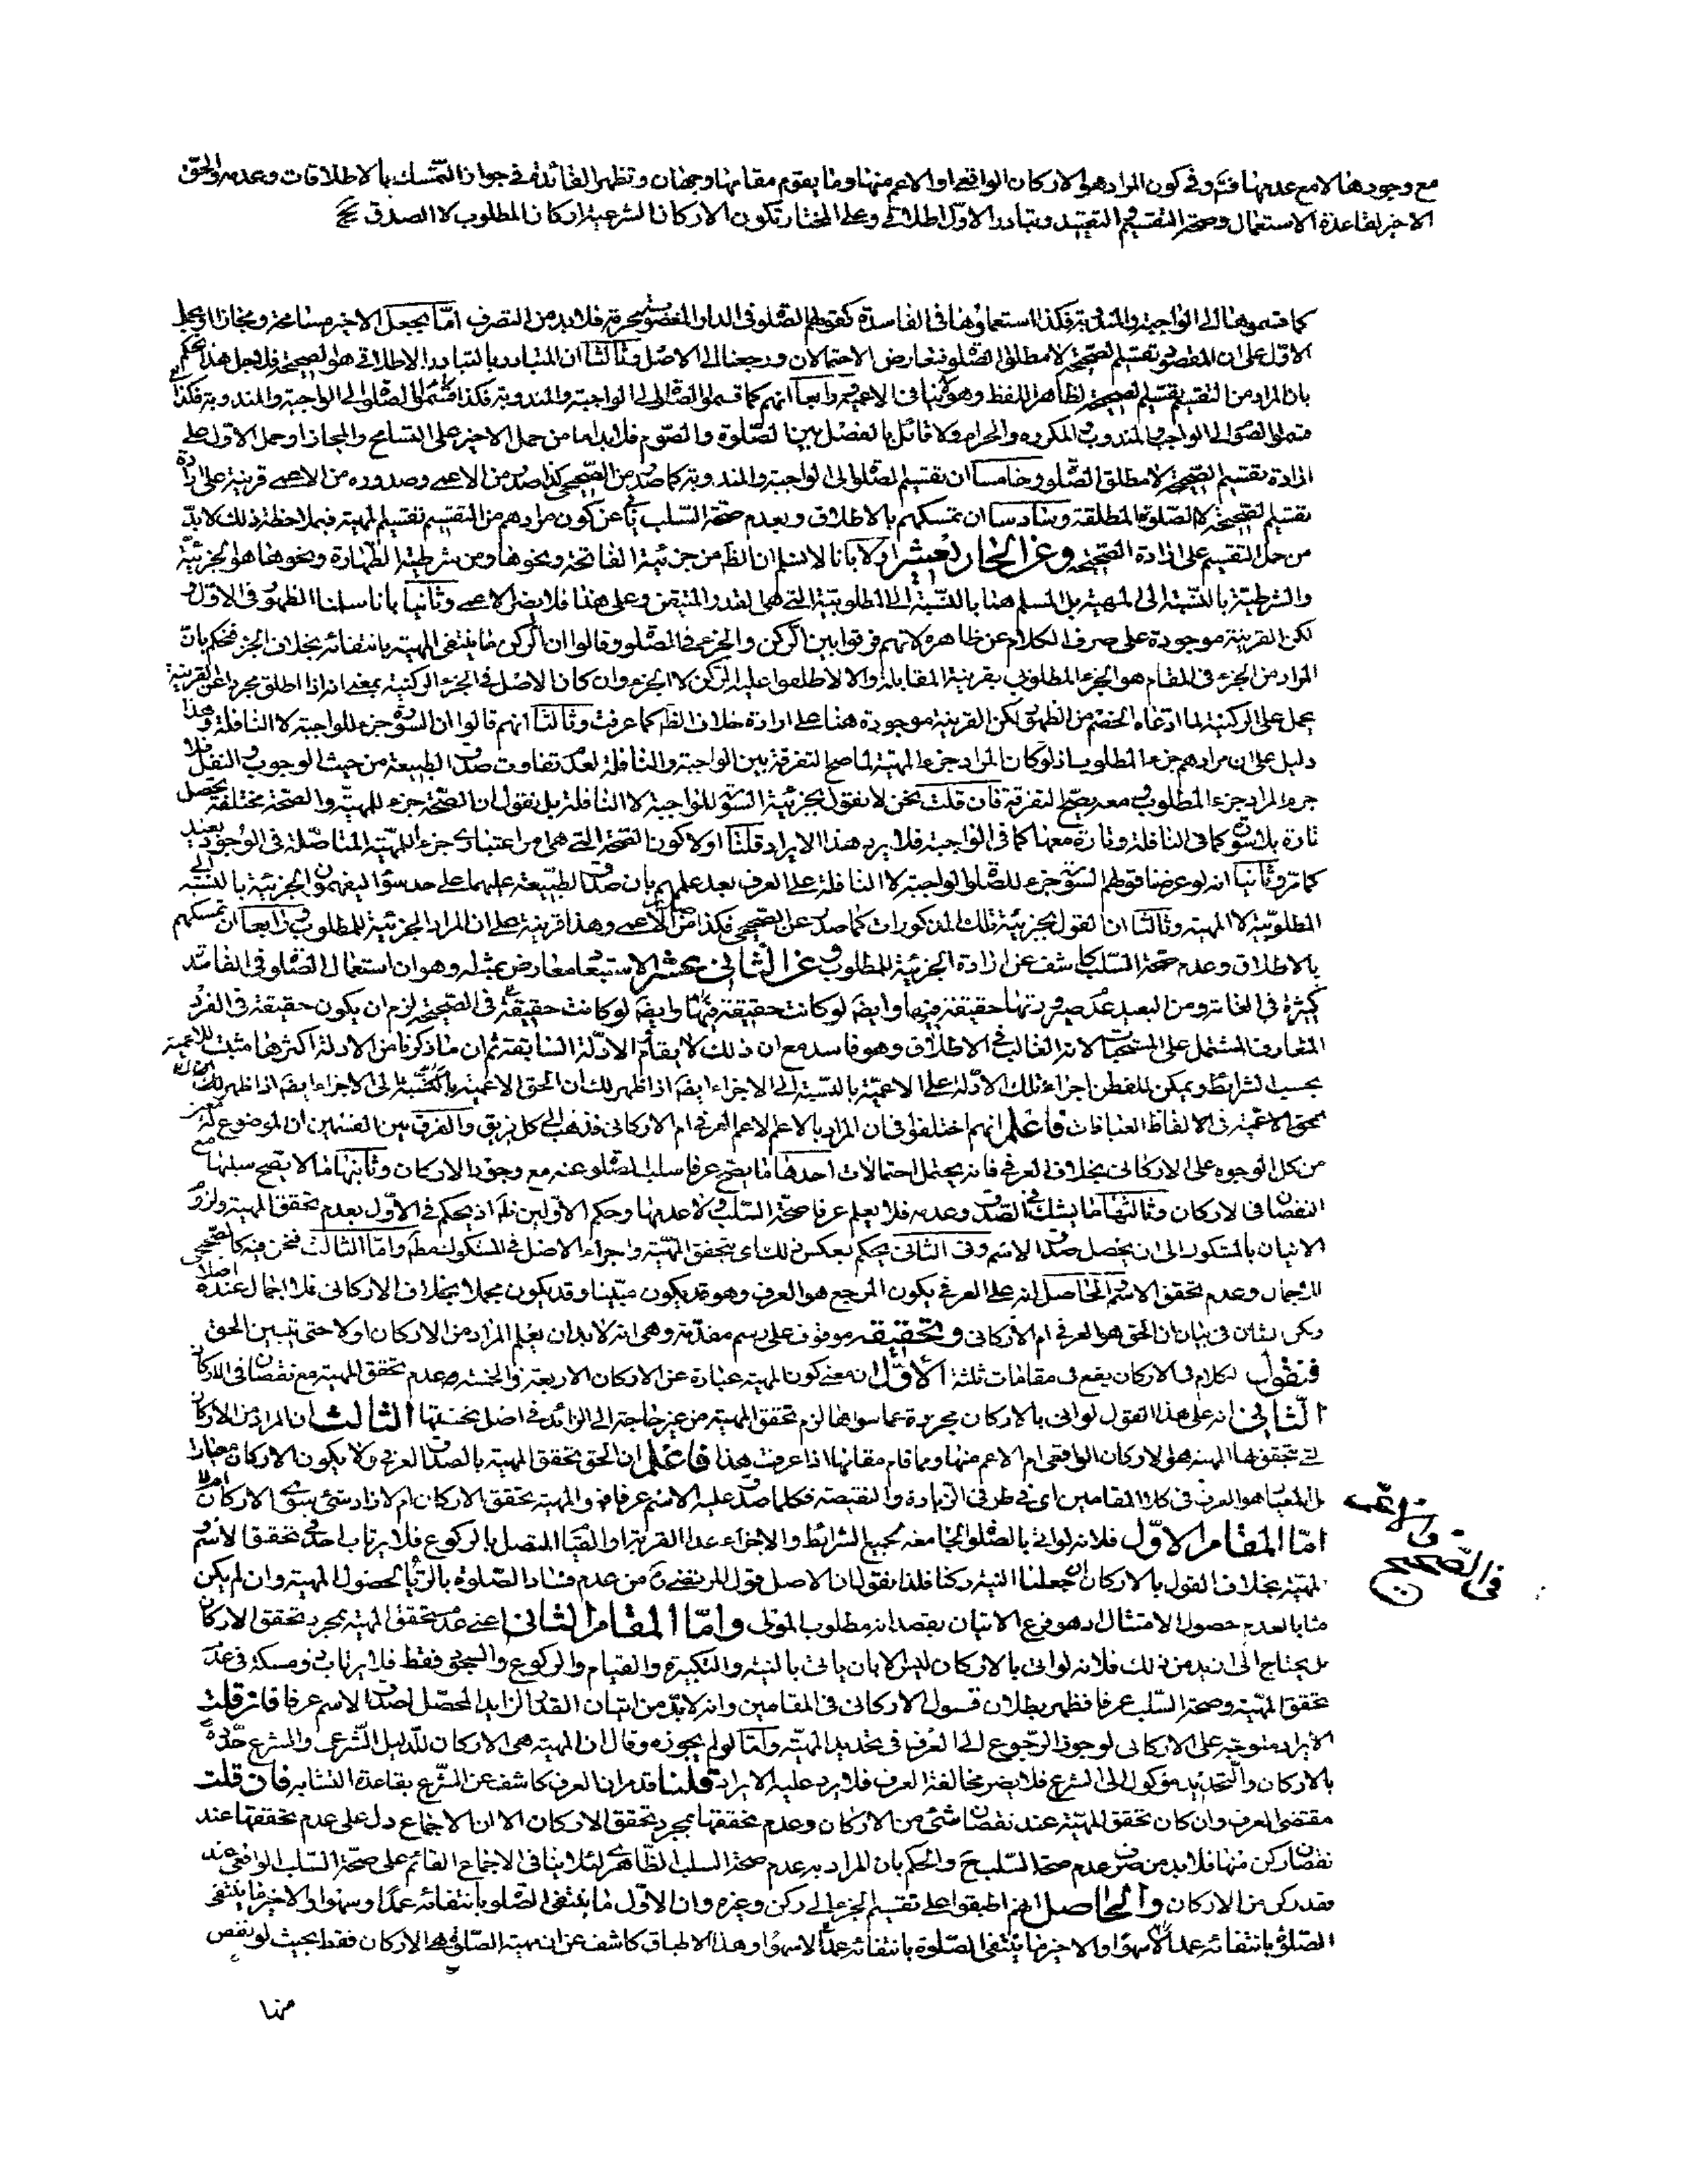 مع وجودها لا مع عدمها فتم وفي كون المراد هو الاركان الواقعي او الاعم منها وما يقوم مقامها وجهان وتظهر الفائدة في جواز التمسك بالاطلاقات وعدمه والحق
الاخير لقاعدة الاستعمال وصحة التقسيم والتقييد وتبادر الاول اطلاقي وعلى المختار تكون الاركان الشرعية اركان المطلوب لا الصدق
كما قسموها الى الواجبة والمندوبة فكذا استعملوها في الفاسدة كقولهم الصلوة في الدار المغصوبة محرمة فلا بد من التصرف اما بجعل الاخير مسامحة ومجازا او بحمل
الاول على ان المقصود تقسيم الصحيحة لا مطلق الصلوة فتعارض الاحتمالان ورجعنا الى الاصل وثالثا ان المتبادر بالتبادر الاطلاقي هو الصحيحة فلاجل هذا نحكم
بان المراد من التقسيم تقسيم الصحيحة لظاهر اللفظ وهو لا ينافي الاعمية ورابعا انهم كما قسموا الصلوة الى الواجبة والمندوبة فكذا
قسموا الصوم الى الواجب والمندوب والمكروه والحرام ولا قائل بالفصل بين الصلوة والصوم فلا بد اما من حمل الاخير على التسامح والمجاز او حمل الاول على
ارادة تقسيم الصحيحة لا مطلق الصلوة وخامسا ان تقسيم الصلوة الى الواجبة والمندوبة كما صدر من الصحيحي كذا صدر من الاعمي وصدوره من الاعمي قرينة على ارادة
تقسيم الصحيحة لا الصلوة المطلقة وسادسا ان تمسكهم بالاطلاق وبعدم صحة السلب كون مرادهم من التقسيم تقسيم المهية فبملاحظة ذلك لا بد
من حمل التقسيم على ارادة الصحيحة وعن الحادي عشر اولا بانا لا نسلم ان الظ من جزئية الفاتحة ونحوها ومن شرطية الطهارة ونحوها هو الجزئية
والشرطية بالنسبة الى المهية بل المسلم هنا بالنسبة الى المطلوبية التي هي القدر المتيقن وعلى هذا فلا يضر الاعمي وثانيا بانا سلمنا الظهور في الاول
لكن القرينة موجودة على صرف الكلام عن ظاهره لانهم فرقوا بين الركن والجزء في الصلوة وقالوا ان الركن ما ينتفي المهية بانتفائه بخلاف الجزء فنحكم بان
المراد من الجزء في المقام هو الجزء المطلوبي بقرينة المقابلة والا لاطلقوا عليه الركن لا الجزء وان كان الاصل في الجزء الركنية بمعنى انه اذا اطلق مجردا عن القرينة
يحمل على الركنية لما ادعاه الخصم من الظهور لكن القرينة موجودة هنا على ارادة خلاف الظ كما عرفت وثالثا انهم قالوا ان السورة جزء للواجبة لا النافلة وهذا
دليل على ان مرادهم جزء المطلوب اذ لو كان المراد جزء المهية لما صح التفرقة بين الواجبة والنافلة لعدم تفاوت صدق الطبيعة من حيث الوجوب والنفل
جزء المراد جزء المطلوب معه يصح التفرقة فان قلت نحن لا نقول بجزئية السورة للواجبة لا النافلة بل نقول ان الصحة جزء للمهية والصحة مختلفة يحصل
تارة بلا سورة كما في النافلة وتارة معها كما في الواجبة فلا يرد هذا الايراد قلنا اولا كون الصحة التي هي امر اعتباري جزء للمهية المتاصلة في الوجود بعيد
كما مر وثانيا انه لو عرضنا قولهم السورة جزء للصلوة الواجبة لا النافلة على العرف بعد علمهم بان صدق الطبيعة عليهما على حد سواء ليفهمون الجزئية بالنسبة الى
المطلوبية لا المهية وثالثا ان القول بجزئية تلك المذكورات كما صدر عن الصحيحي فكذا من الاعمي وهذا قرينة على ان المراد الجزئية للمطلوب ورابعا ان تمسكهم
بالاطلاق وعدم صحة السلب كاشف عن ارادة الجزئية للمطلوب وعن الثاني عشر الاستبعاد معارض بمثله وهو ان استعمال الصلوة في الفاسدة
كثيرة في الغاية ومن البعيد عدم صيرورتها حقيقة فيها وايضا لو كانت حقيقة في الصحيحة لزم ان يكون حقيقة في الفرد
المتعارف المشتمل على المستحبات لانه الغالب في الاطلاق وهو فاسد مع ان ذلك لا يقاوم الادلة السابقة ثم ان ما ذكرنا من الادلة اكثرها مثبت للاعمية
بحسب الشرائط ويمكن للفطن اجراء تلك الادلة على الاعمية بالنسبة الى الاجزاء ايضا اذا ظهر لك ان الحق الاعمية بالنسبة الى الاجزاء ايضا اذا ظهر لك
الاعمية في الالفاظ العبادات فاعلم انهم اختلفوا في ان المراد بالاعم الاعم العرفي ام الاركاني فذهب الى كل فريق والفرق بين القسمين ان الموضوع له
من كل الوجوه على الاركاني بخلاف العرفي فانه يحتمل احتمالات احدها ما يصح عرفا سلب الصلوة عنه مع وجود الاركان وثانيها ما لا يصح سلبها مع
النقصان في الاركان وثالثها ما يشك في الصدق وعدمه فلا يعلم عرفا صحة السلب ولا عدمها وحكم الاولين ظ اذ يحكم في الاول بعدم تحقق المهية ولزوم
الاتيان بالمشكوك الى ان يحصل صدق الاسم وفي الثاني يحكم بعكس ذلك اي بتحقق المهية واجراء الاصل في المشكوك مط واما الثالث فنحن فيه كالصحيحي
للاجمال وعدم تحقق الاسم والحاصل انه على العرفي يكون المرجع هو العرف وهو قد يكون مبينا وقد يكون مجملا بخلاف الاركاني فلا اجمال عنده اصلا
في بيان ان الحق هو العرفي ام الاركاني وتحقيقه موقوف على رسم مقدمة وهي انه لا بد ان يعلم المراد من الاركان اولا حتى تبين الحق
فنقول الكلام في الاركان يقع في مقامات ثلثة الاول ان معنى كون المهية عبارة عن الاركان الاربعة او الخمسة هو عدم تحقق المهية مع نقصان في الاركان
الثاني انه على هذا القول لو اتى بالاركان مجردة عما سواها لزم تحقق المهية من غير حاجة الى الزائد في اصل تحققها الثالث ان المراد من الاركان
التي تحققها المهية هو الاركان الواقعي ام الاعم منها ومما قام مقامها اذا عرفت هذا فاعلم ان الحق تحقق المهية بالصدق العرفي ولا يكون الاركان معيارا
بل المعيار هو العرف في كلا المقامين اي في طرفي الزيادة والنقيصة فكلما صدق عليه الاسم عرفا فهو المهية بتحقق الاركان ام لا زاد شيء سوى الاركان ام لا
اما المقام الاول فلانه لو اتى بالصلوة الجامعة لجميع الشرائط والاجزاء عدا القربة او القيام المتصل بالركوع فلا يرتاب احد في تحقق الاسم
المهية بخلاف القول بالاركان ان جعلنا النية ركنا فلذا نقول ان الاصل قول المرتضى من عدم فساد الصلوة بالرياء لحصول المهية وان لم يكن
مثابا لعدم حصول الامتثال اذ هو فرع الاتيان بقصد انه مطلوب المولى واما المقام الثاني اعني عدم تحقق المهية بمجرد تحقق الاركان
بل يحتاج الى ازيد من ذلك فلانه لو اتى بالاركان ليس الا بان ياتي بالنية والتكبيرة والقيام والركوع والسجود فقط فلا يرتاب ذو مسكة في عدم
تحقق المهية وصحة السلب عرفا فظهر بطلان قول الاركاني في المقامين وانه لا بد من اتيان القدر الزايد المحصل لصدق الاسم عرفا فان قلت
الايراد متوجه على الاركاني لو جوز الرجوع الى العرف في تحديد المهية واما لو لم يجوزه وقال ان المهية هي الاركان للدليل الشرعي والشرع حدده
بالاركان والتحديد موكول الى الشرع فلا يضر مخالفة العرف فلا يرد عليه الايراد قلنا قد مر ان العرف كاشف عن الشرع بقاعدة التشابه فان قلت
مقتضى العرف وان كان تحقق المهية عند نقصان شيء من الاركان وعدم تحققها بمجرد تحقق الاركان الا ان الاجماع دل على عدم تحققها عند
نقصان ركن منها فلا بد من صرف عدم صحة السلب ح والحكم بان المراد به عدم صحة السلب الظاهري لئلا ينافي الاجماع القائم على صحة السلب الواقعي عند
فقد ركن من الاركان والحاصل انهم اطبقوا على تقسيم الجزء الى ركن وغيره وان الاول ما ينتفي الصلوة بانتفائه عمدا وسهوا والاخير ما ينتفي
الصلوة بانتفائه عمدا لا سهوا وهذا الاطباق كاشف عن ان مهية الصلوة هي الاركان فقط بحيث لو نقص
منها
في الصحيح